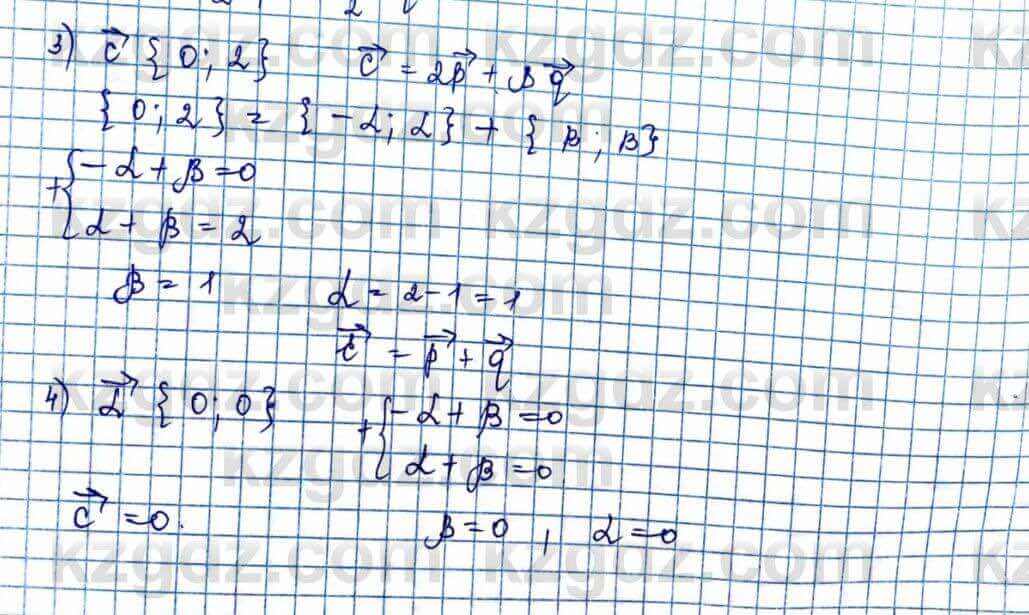 3) c⃗ {0; 2} c⃗ = 2p⃗ + βq⃗
{0; 2} = {-α; α} + {β; β}
+{ -α + β = 0
α + β = 2
β = 1 α = 2 - 1 = 1
c⃗ = p⃗ + q⃗
4) α⃗ {0; 0} +{ -α + β = 0
α + β = 0
c⃗ = 0. β = 0, α = 0
kzgdz.com